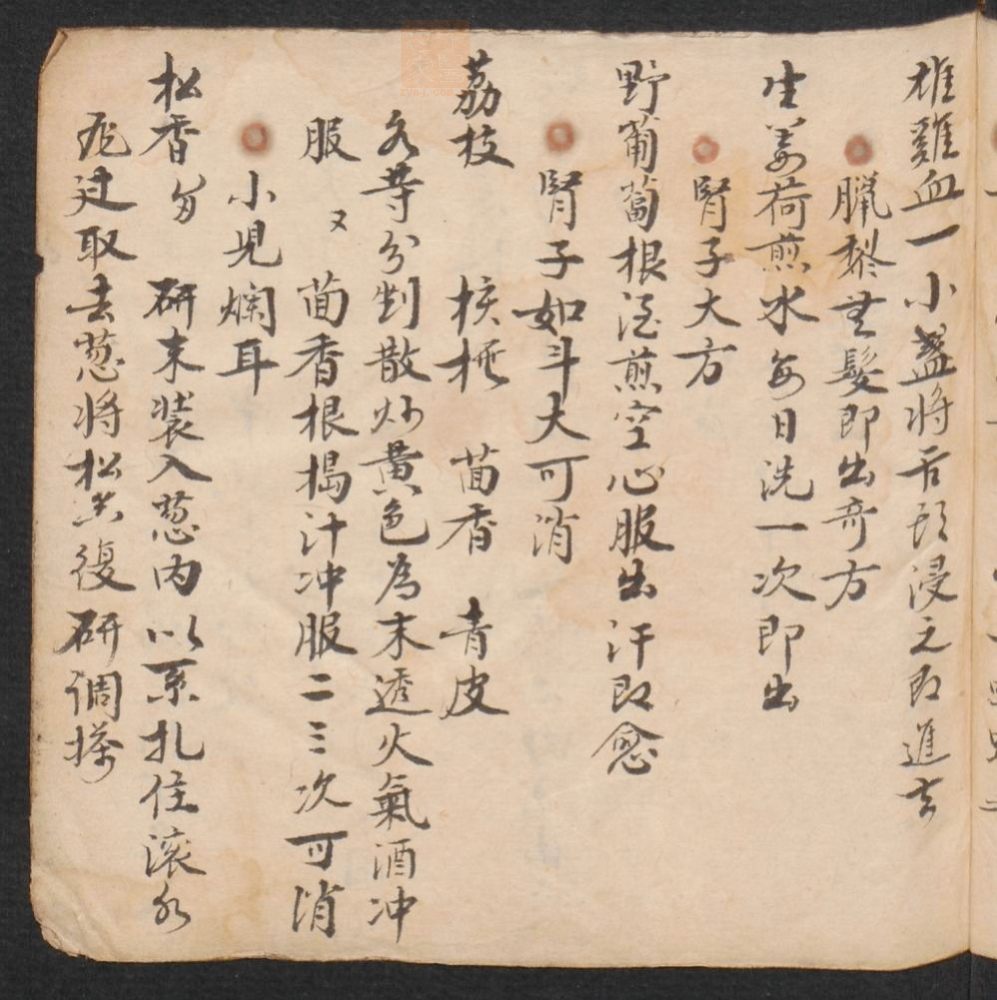 雄雞血一小盞將舌頭浸之即進去
臘梨無髮即出奇方
生姜荷煎水每日洗一次即出
腎子大方
野葡萄根酒煎空心服出汗即愈
腎子如斗大可消
荔枝 核 茴香 青皮
各等分剉散炒黃色為末透火氣酒冲
服 又 茴香根搗汁冲服二三次可消
小児爛耳
松香 研末裝入葱內以系扎住滾水
過取去葱將松香復研調搽